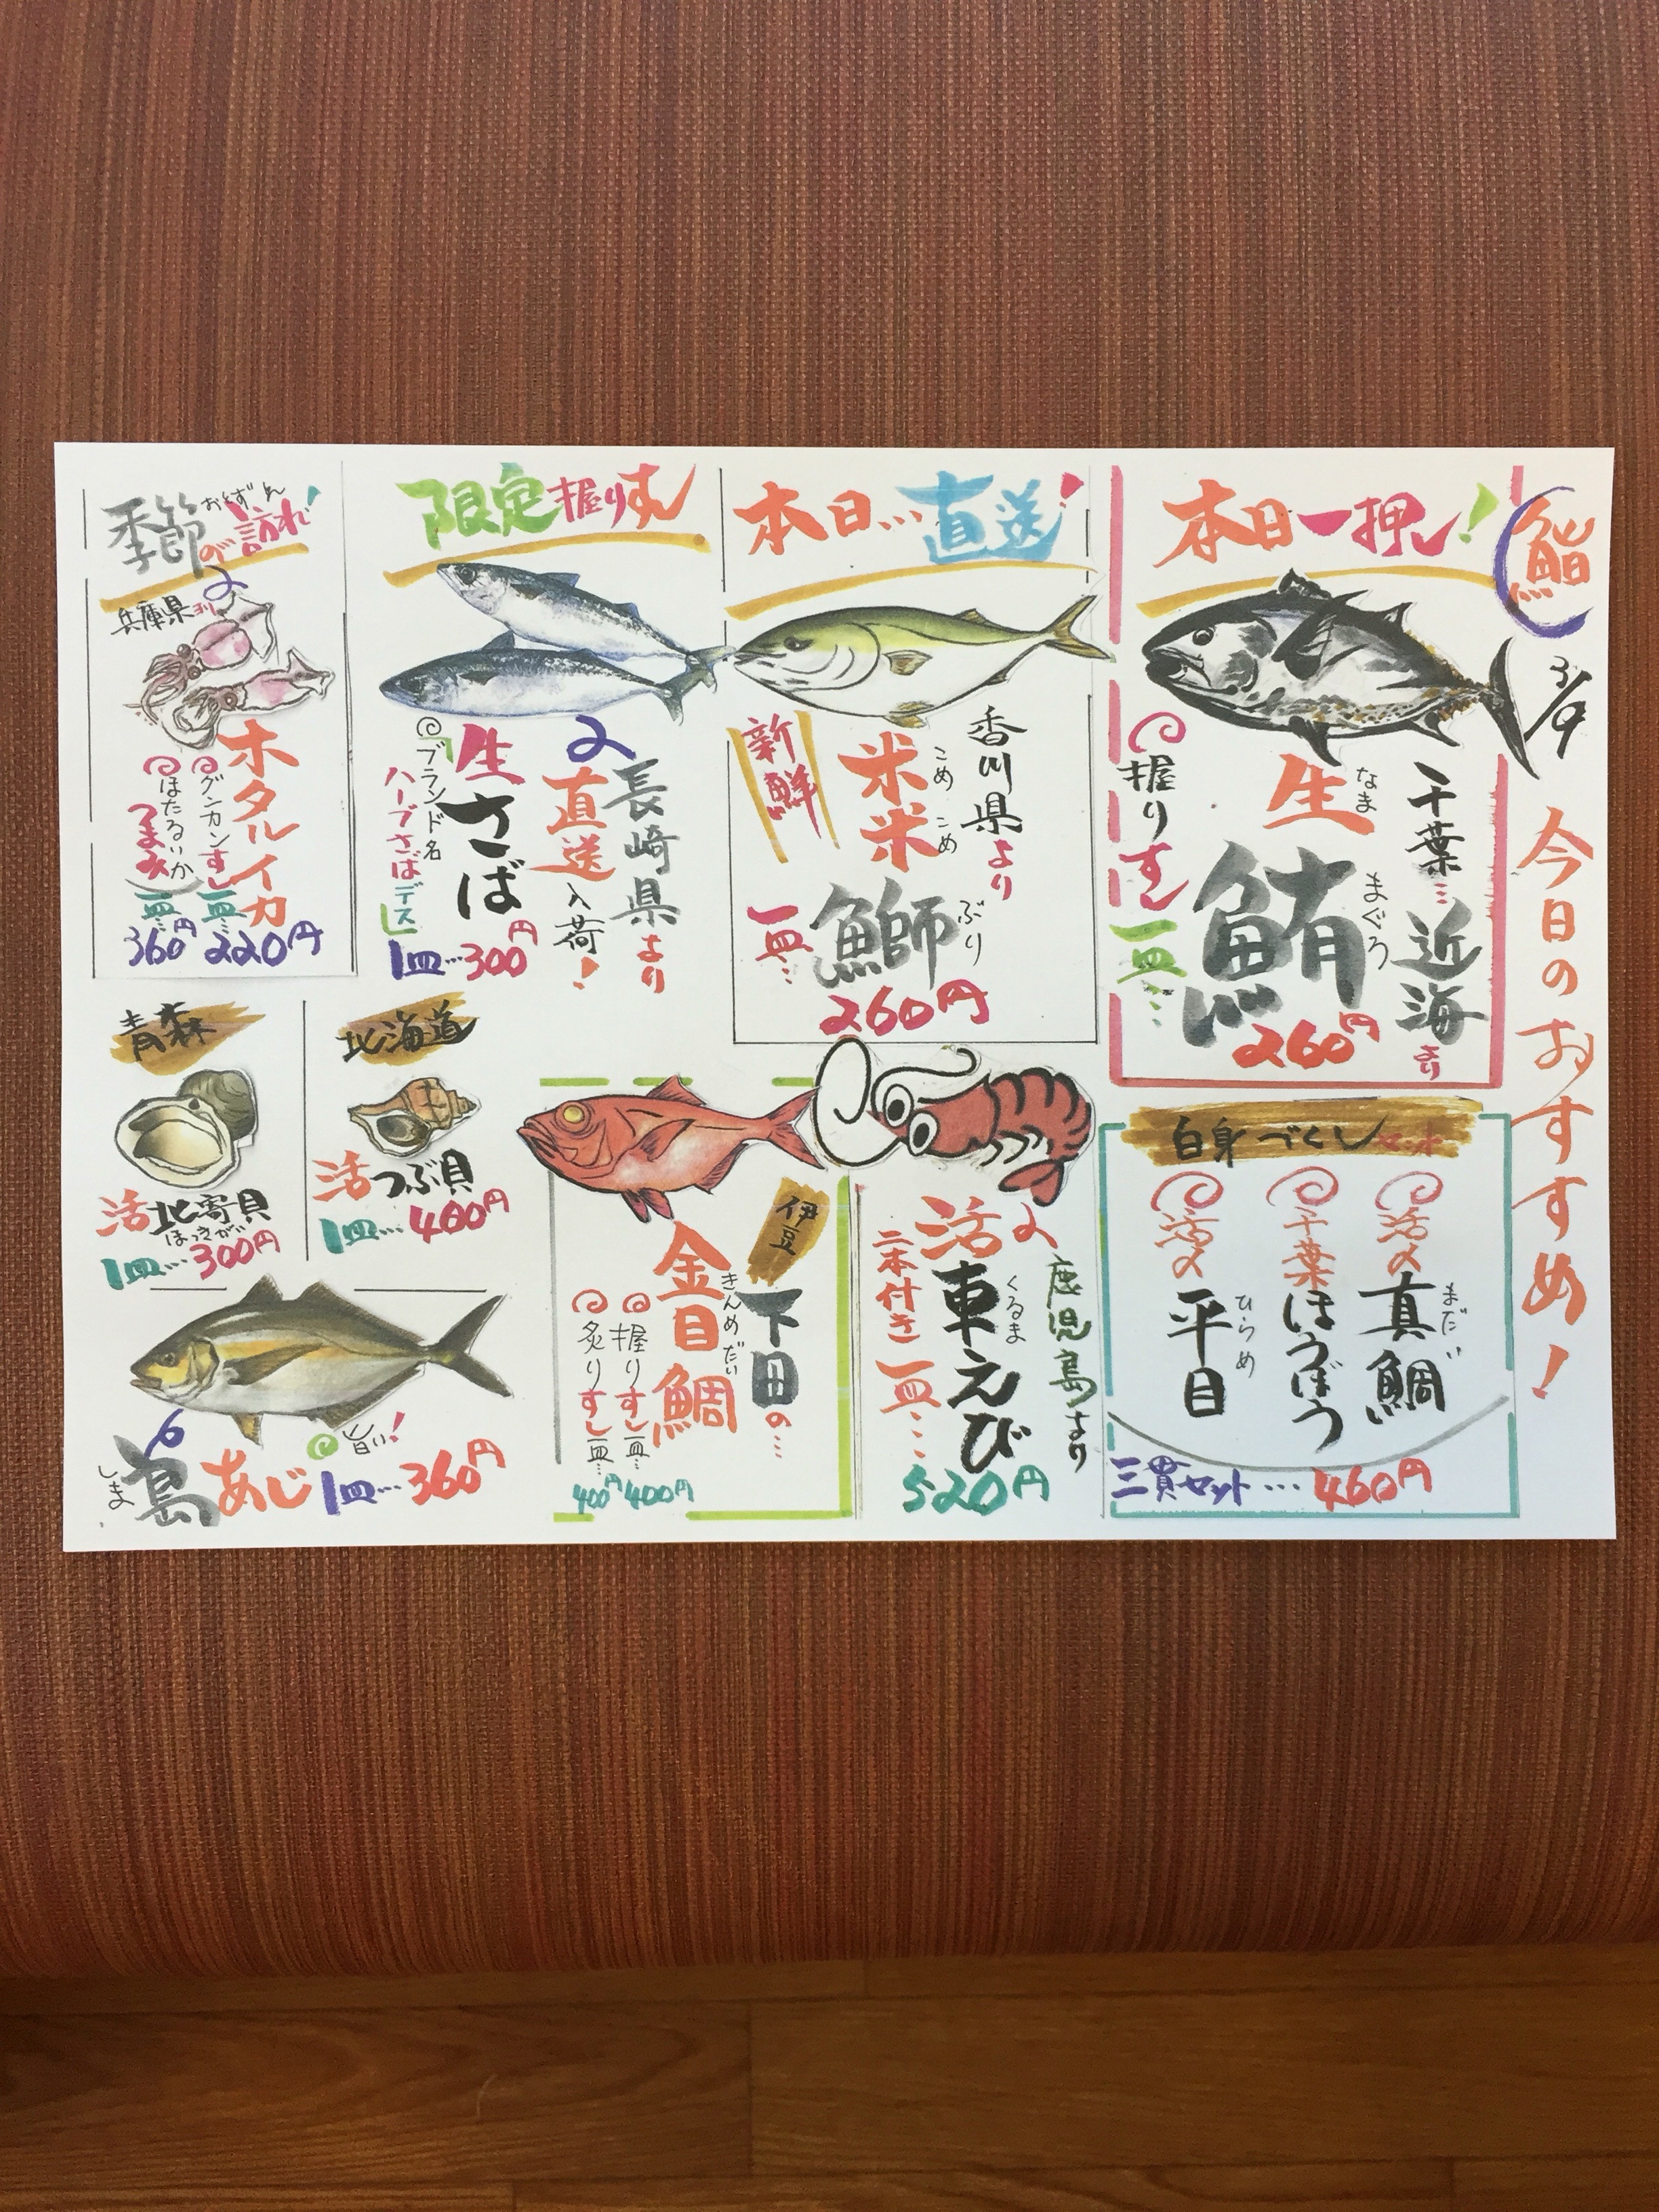 鮨
3/9
今日のおすすめ!
本日一押し!
千葉…近海より
生鮪
なま
まぐろ
握りすし
一皿…
260円
本日…直送!
香川県より
米米鰤
こめこめ
ぶり
新鮮
一皿…
260円
限定握りすし
長崎県より
直送入荷!
生さば
ブランド名
ハーブさばデス
1皿…300円
季節の訪れ!
おとずれ
兵庫県ヨリ
ホタルイカ
グンカンすし
一皿…
220円
ほたるいか
つまみ
一皿…
360円
白身づくしセット
活〆真鯛
まだい
千葉ほうぼう
活〆平目
ひらめ
三貫セット…460円
鹿児島より
活車えび
くるま
二本付き一皿…
520円
伊豆
下田の…
金目鯛
きんめだい
握りすし一皿…
400円
炙りすし一皿…
400円
北海道
活つぶ貝
1皿…460円
青森
活北寄貝
ほっきがい
1皿…300円
島あじ
しま
旨い!
1皿…360円